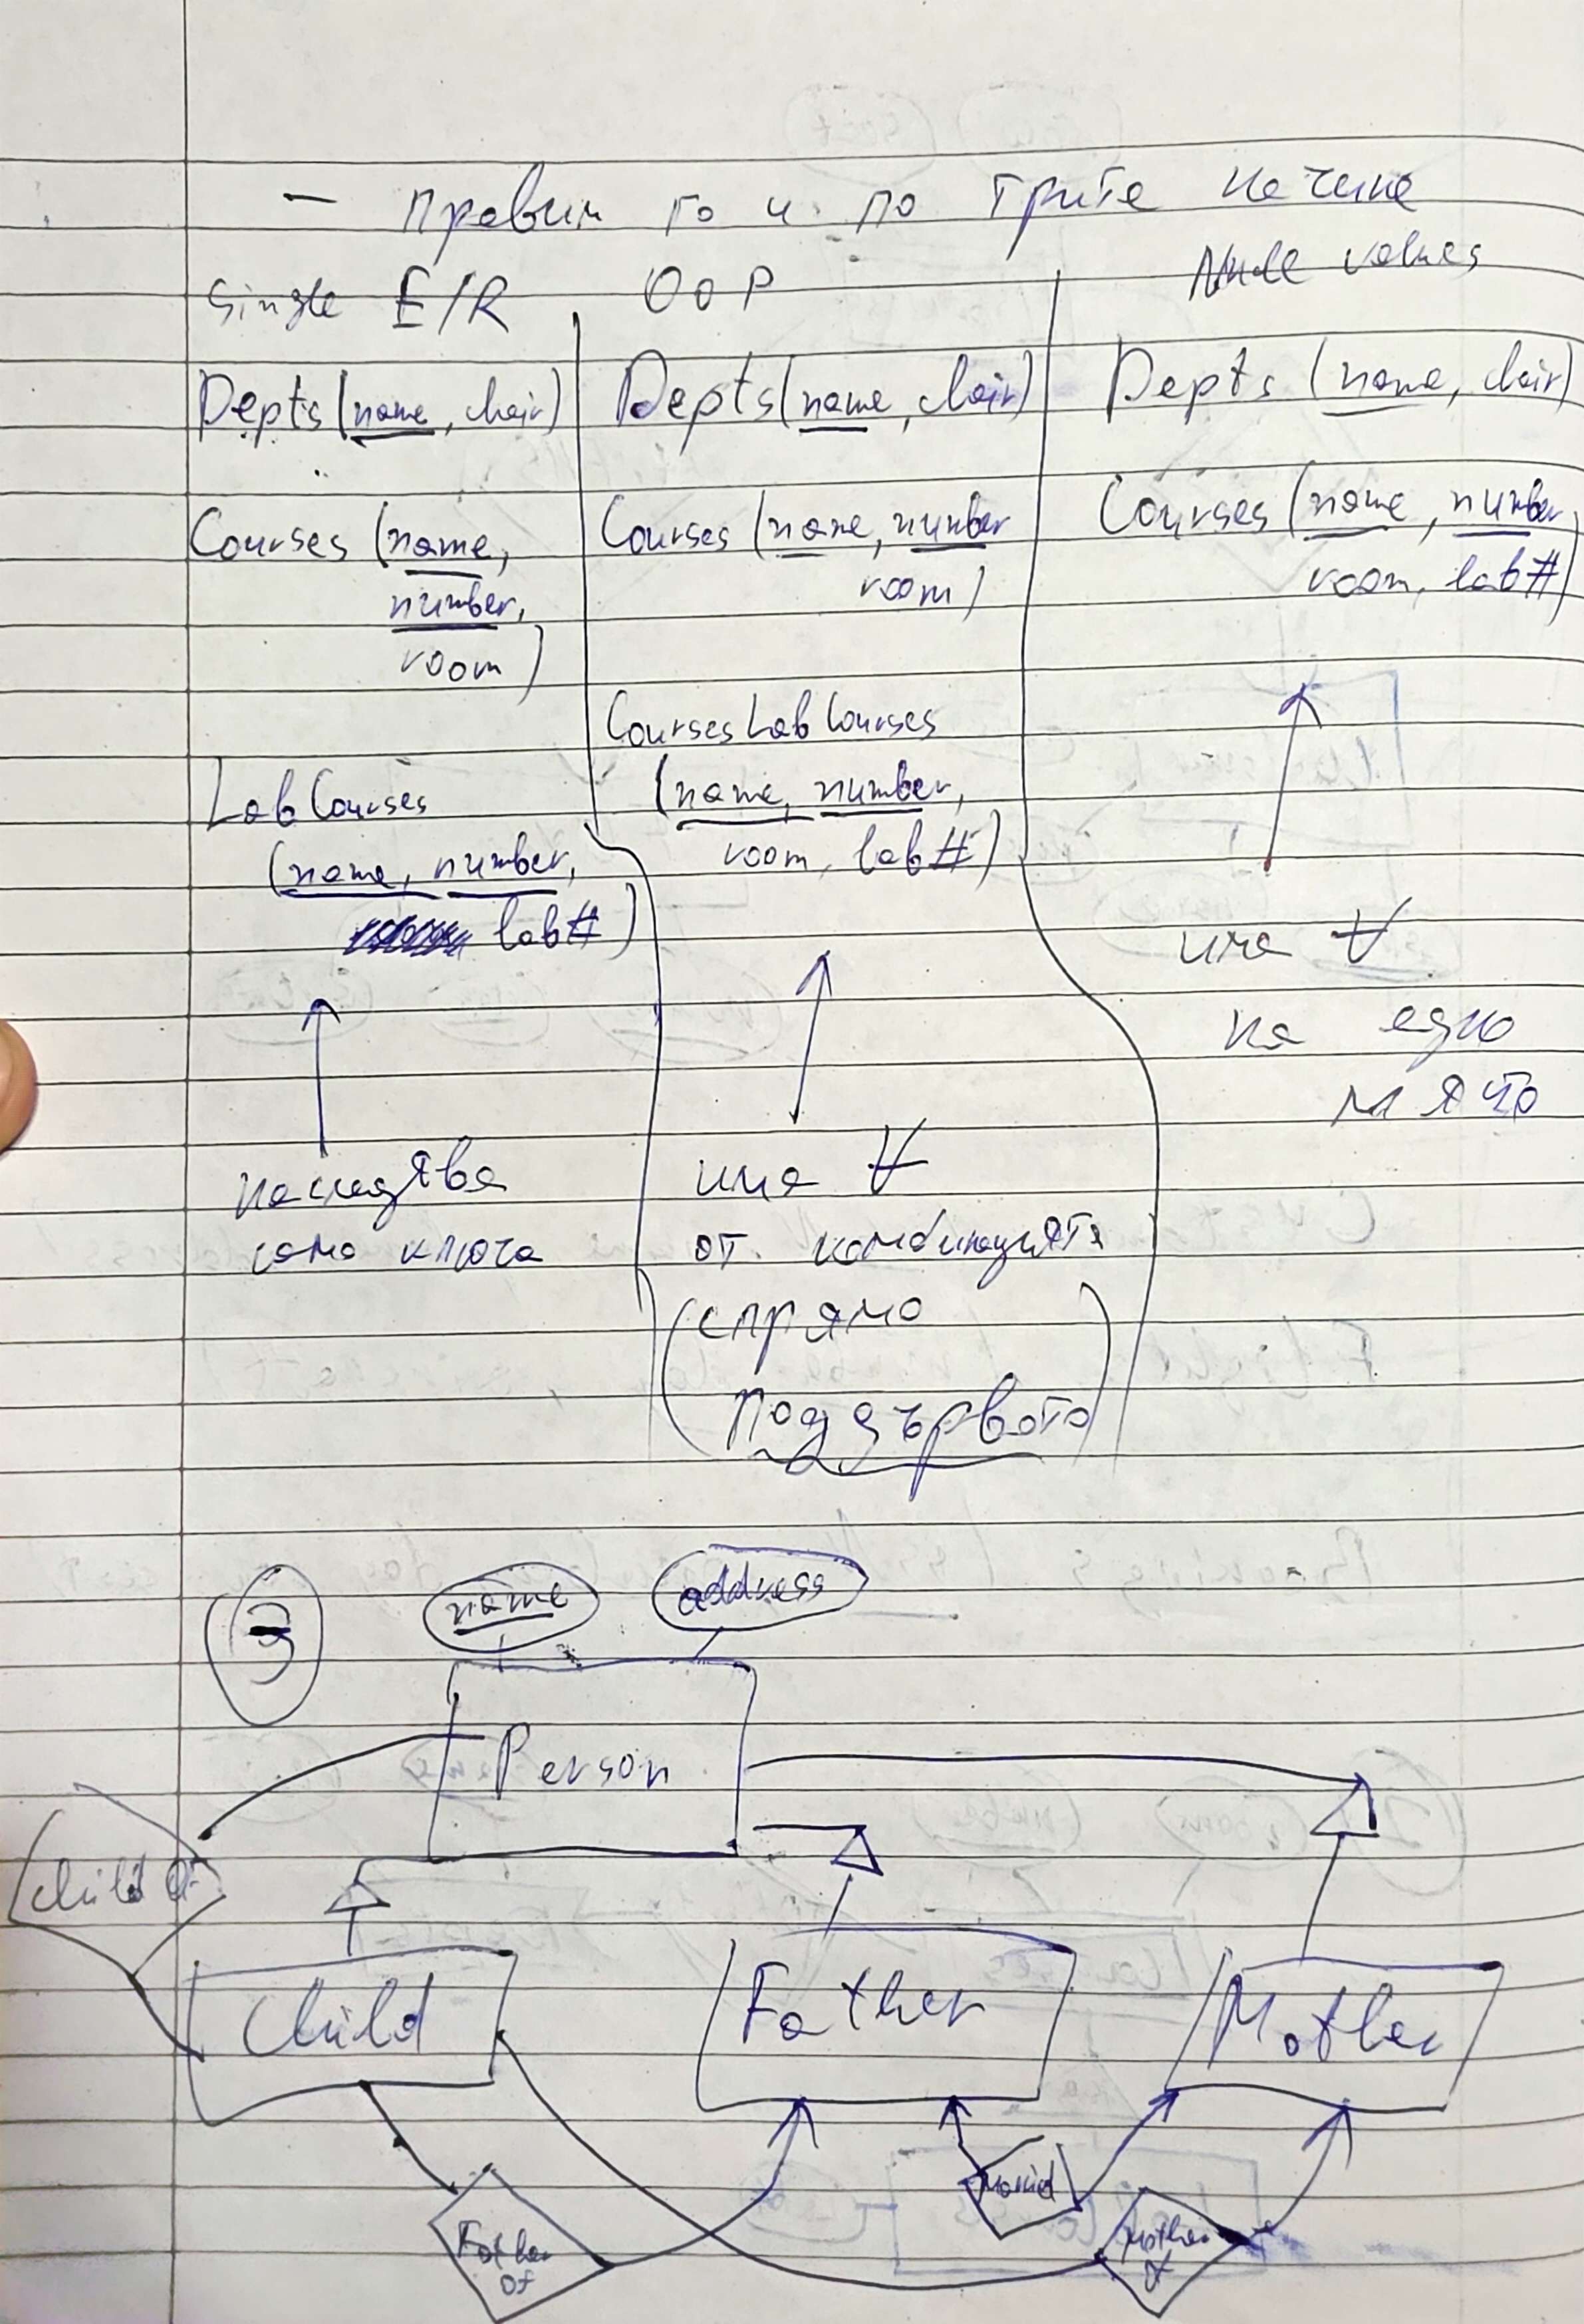 — правим го и по трите начина
Single E/R
Depts (name, chair)
Courses (name,
number,
room)
Lab Courses
(name, number,
lab#)
наследява
само ключа
OOP
Depts (name, chair)
Courses (name, number
room)
CoursesLabCourses
(name, number,
room, lab#)
има ∀
от комбинациите
(спрямо
поддървото)
Null values
Depts (name, chair)
Courses (name, number,
room, lab#)
има ∀
на едно
място
3
name
address
Person
Child Of
Child
Father
Mother
Father
Of
Married
Mother
Of